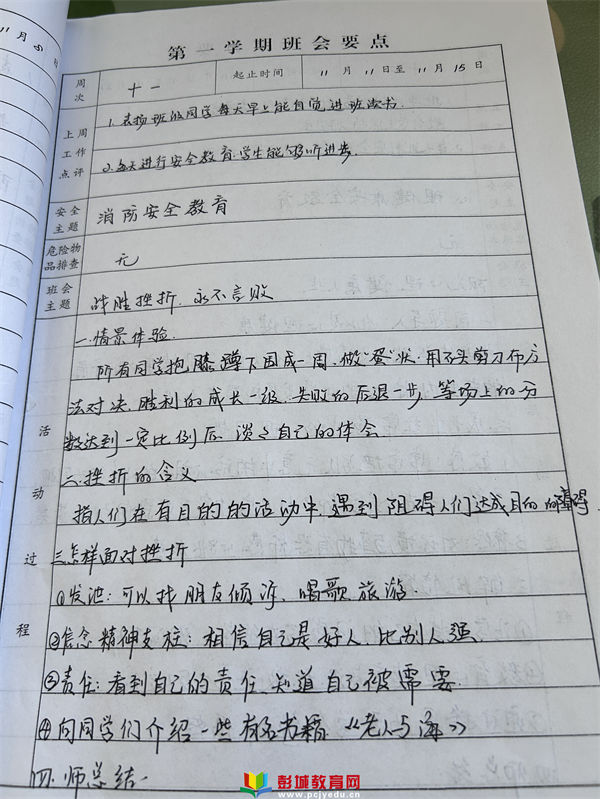 11月8日
第一学期班会要点
周次 十一 起止时间 11月11日至11月15日
上周工作点评
1.表扬班级同学每天早上能自觉进班读书.
2.每天进行安全教育.学生能够听进步.
安全主题 消防安全教育
危险物品排查 无
班会主题 战胜挫折.永不言败
活动过程
一.情景体验.
所有同学抱膝蹲下围成一周.做"蛋"状.用石头剪刀布方
法对决.胜利的成长一级.失败的后退一步,等场上的分
数达到一定比例后.谈之自己的体会.
二.挫折的含义
指人们在有目的的活动中.遇到阻碍人们达成目的的障碍.
三.怎样面对挫折
①发泄:可以找朋友倾诉、唱歌.旅游.
②信念精神支柱:相信自己是好人.比别人强.
③责任:看到自己的责任.知道自己被需要.
④向同学们介绍一些有名书籍《老人与海》
四.师总结.
彭城教育网
www.pcjyedu.cn